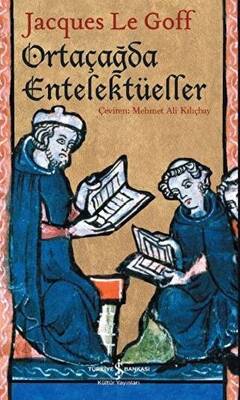 Jacques Le Goff
Ortaçağda
Entelektüeller
Çeviren: Mehmet Ali Kılıçbay
TÜRKİYE İŞ BANKASI
Kültür Yayınları